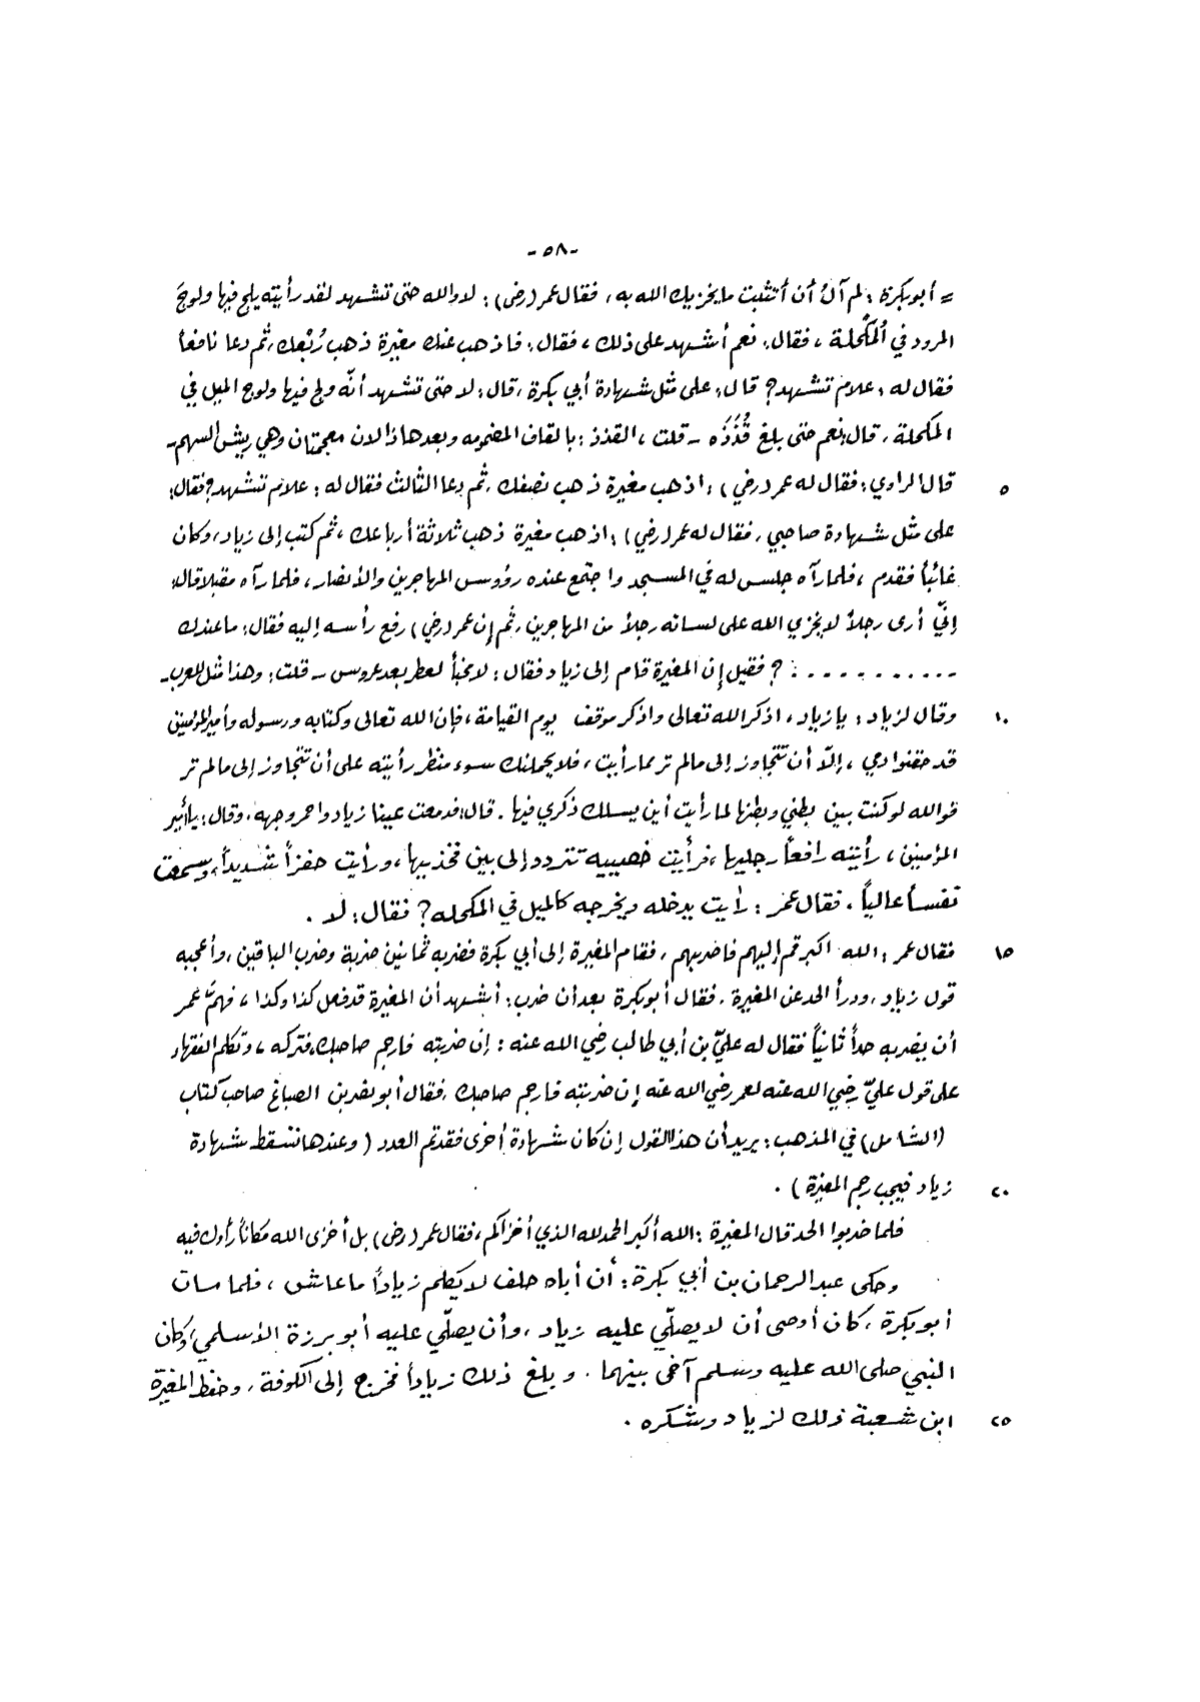 -٥٨-
= أبو بكرة : لم آلُ أن أتثبت ما يخزيك الله به ، فقال عمر (رض) : لا والله حتى تشهد لقد رأيته يلج فيها ولوجَ
المرود في المُكحلة ، فقال : نعم أشهد على ذلك ، فقال : فاذهب عنك مغيرة ذهب رُبْعك ، ثم دعا نافعاً
فقال له : علام تشهد ؟ قال : على مثل شهادة أبي بكرة ، قال : لا حتى تشهد أنّه ولج فيها ولوج الميل في
المكحلة ، قال : نعم حتى بلغ قُذَذَه - قلت ، القذذ : بالقاف المضمومه وبعدها ذالان معجمتان وهي ريش السهم -
٥ قال الراوي : فقال له عمر (رضي) : اذهب مغيرة ذهب نصفك ، ثم دعا الثالث فقال له : علام تشهد ؟ فقال :
على مثل شهادة صاحبي ، فقال له عمر (رضي) : اذهب مغيرة ذهب ثلاثة أرباعك ، ثم كتب إلى زياد ، وكان
غائباً فقدم ، فلما رآه جلس له في المسجد واجتمع عنده رؤوس المهاجرين والأنصار ، فلما رآه مقبلا قال :
إنّي أرى رجلاً لا يخزي الله على لسانه رجلاً من المهاجرين ، ثم إن عمر (رضي) رفع رأسه إليه فقال : ما عندك
. . . . . . . . . . : ؟ فقيل إن المغيرة قام إلى زياد فقال : لا مخبأ لعطر بعد عروس - قلت : وهذا مثل للعرب -
١٠ وقال لزياد : يا زياد ، اذكر الله تعالى واذكر موقف يوم القيامة ، فإن الله تعالى وكتابه ورسوله وأمير المؤمنين
قد حقنوا دمي ، إلاّ أن تتجاوز إلى مالم تر مما رأيت ، فلا يحملنك سوء منظر رأيته على أن تتجاوز إلى مالم تر
فوالله لو كنت بين بطني وبطنها لما رأيت أين يسلك ذكري فيها . قال : فدمعت عينا زياد واحمر وجهه ، وقال : يا أمير
المؤمنين ، رأيته رافعاً رجليها ، فرأيت خصييه تتردد إلى بين فخذيها ، ورأيت حفزاً شديداً ، وسمعت
نفساً عالياً . فقال عمر : رأيت يدخله ويخرجه كالميل في المكحله ؟ فقال : لا .
١٥ فقال عمر : الله اكبر قم إليهم فاضربهم ، فقام المغيرة إلى أبي بكرة فضربه ثمانين ضربة وضرب الباقين ، وأعجبه
قول زياد ، ودرأ الحد عن المغيرة . فقال أبو بكرة بعد أن ضرب : أشهد أن المغيرة قد فعل كذا وكذا ، فهمّ عمر
أن يضربه حداً ثانياً فقال له عليّ بن أبي طالب رضي الله عنه : إن ضربته فارجم صاحبك ، فتركه ، وتكلم الفقهاء
على قول عليّ رضي الله عنه لعمر رضي الله عنه إن ضربته فارجم صاحبك . فقال أبو نصر بن الصباغ صاحب كتاب
(الشامل) في المذهب : يريد أن هذا القول إن كان شهادة أخرى فقد تم العدد ( وعندها تسقط شهادة
٢٠ زياد فيجب رجم المغيرة ) .
فلما ضربوا الحد قال المغيرة : الله أكبر الحمد لله الذي أخزاكم ، فقال عمر (رض) بل أخزى الله مكاناً رأوك فيه
وحكى عبد الرحمان بن أبي بكرة : أن أباه حلف لا يكلم زياداً ما عاش ، فلما مات
أبو بكرة ، كان أوصى أن لا يصلّي عليه زياد ، وأن يصلّي عليه أبو برزة الأسلمي ، وكان
النبي صلى الله عليه وسلم آخى بينهما . وبلغ ذلك زياداً فخرج إلى الكوفة ، وحفظ المغيرة
٢٥ ابن شعبة ذلك لزياد وشكره .